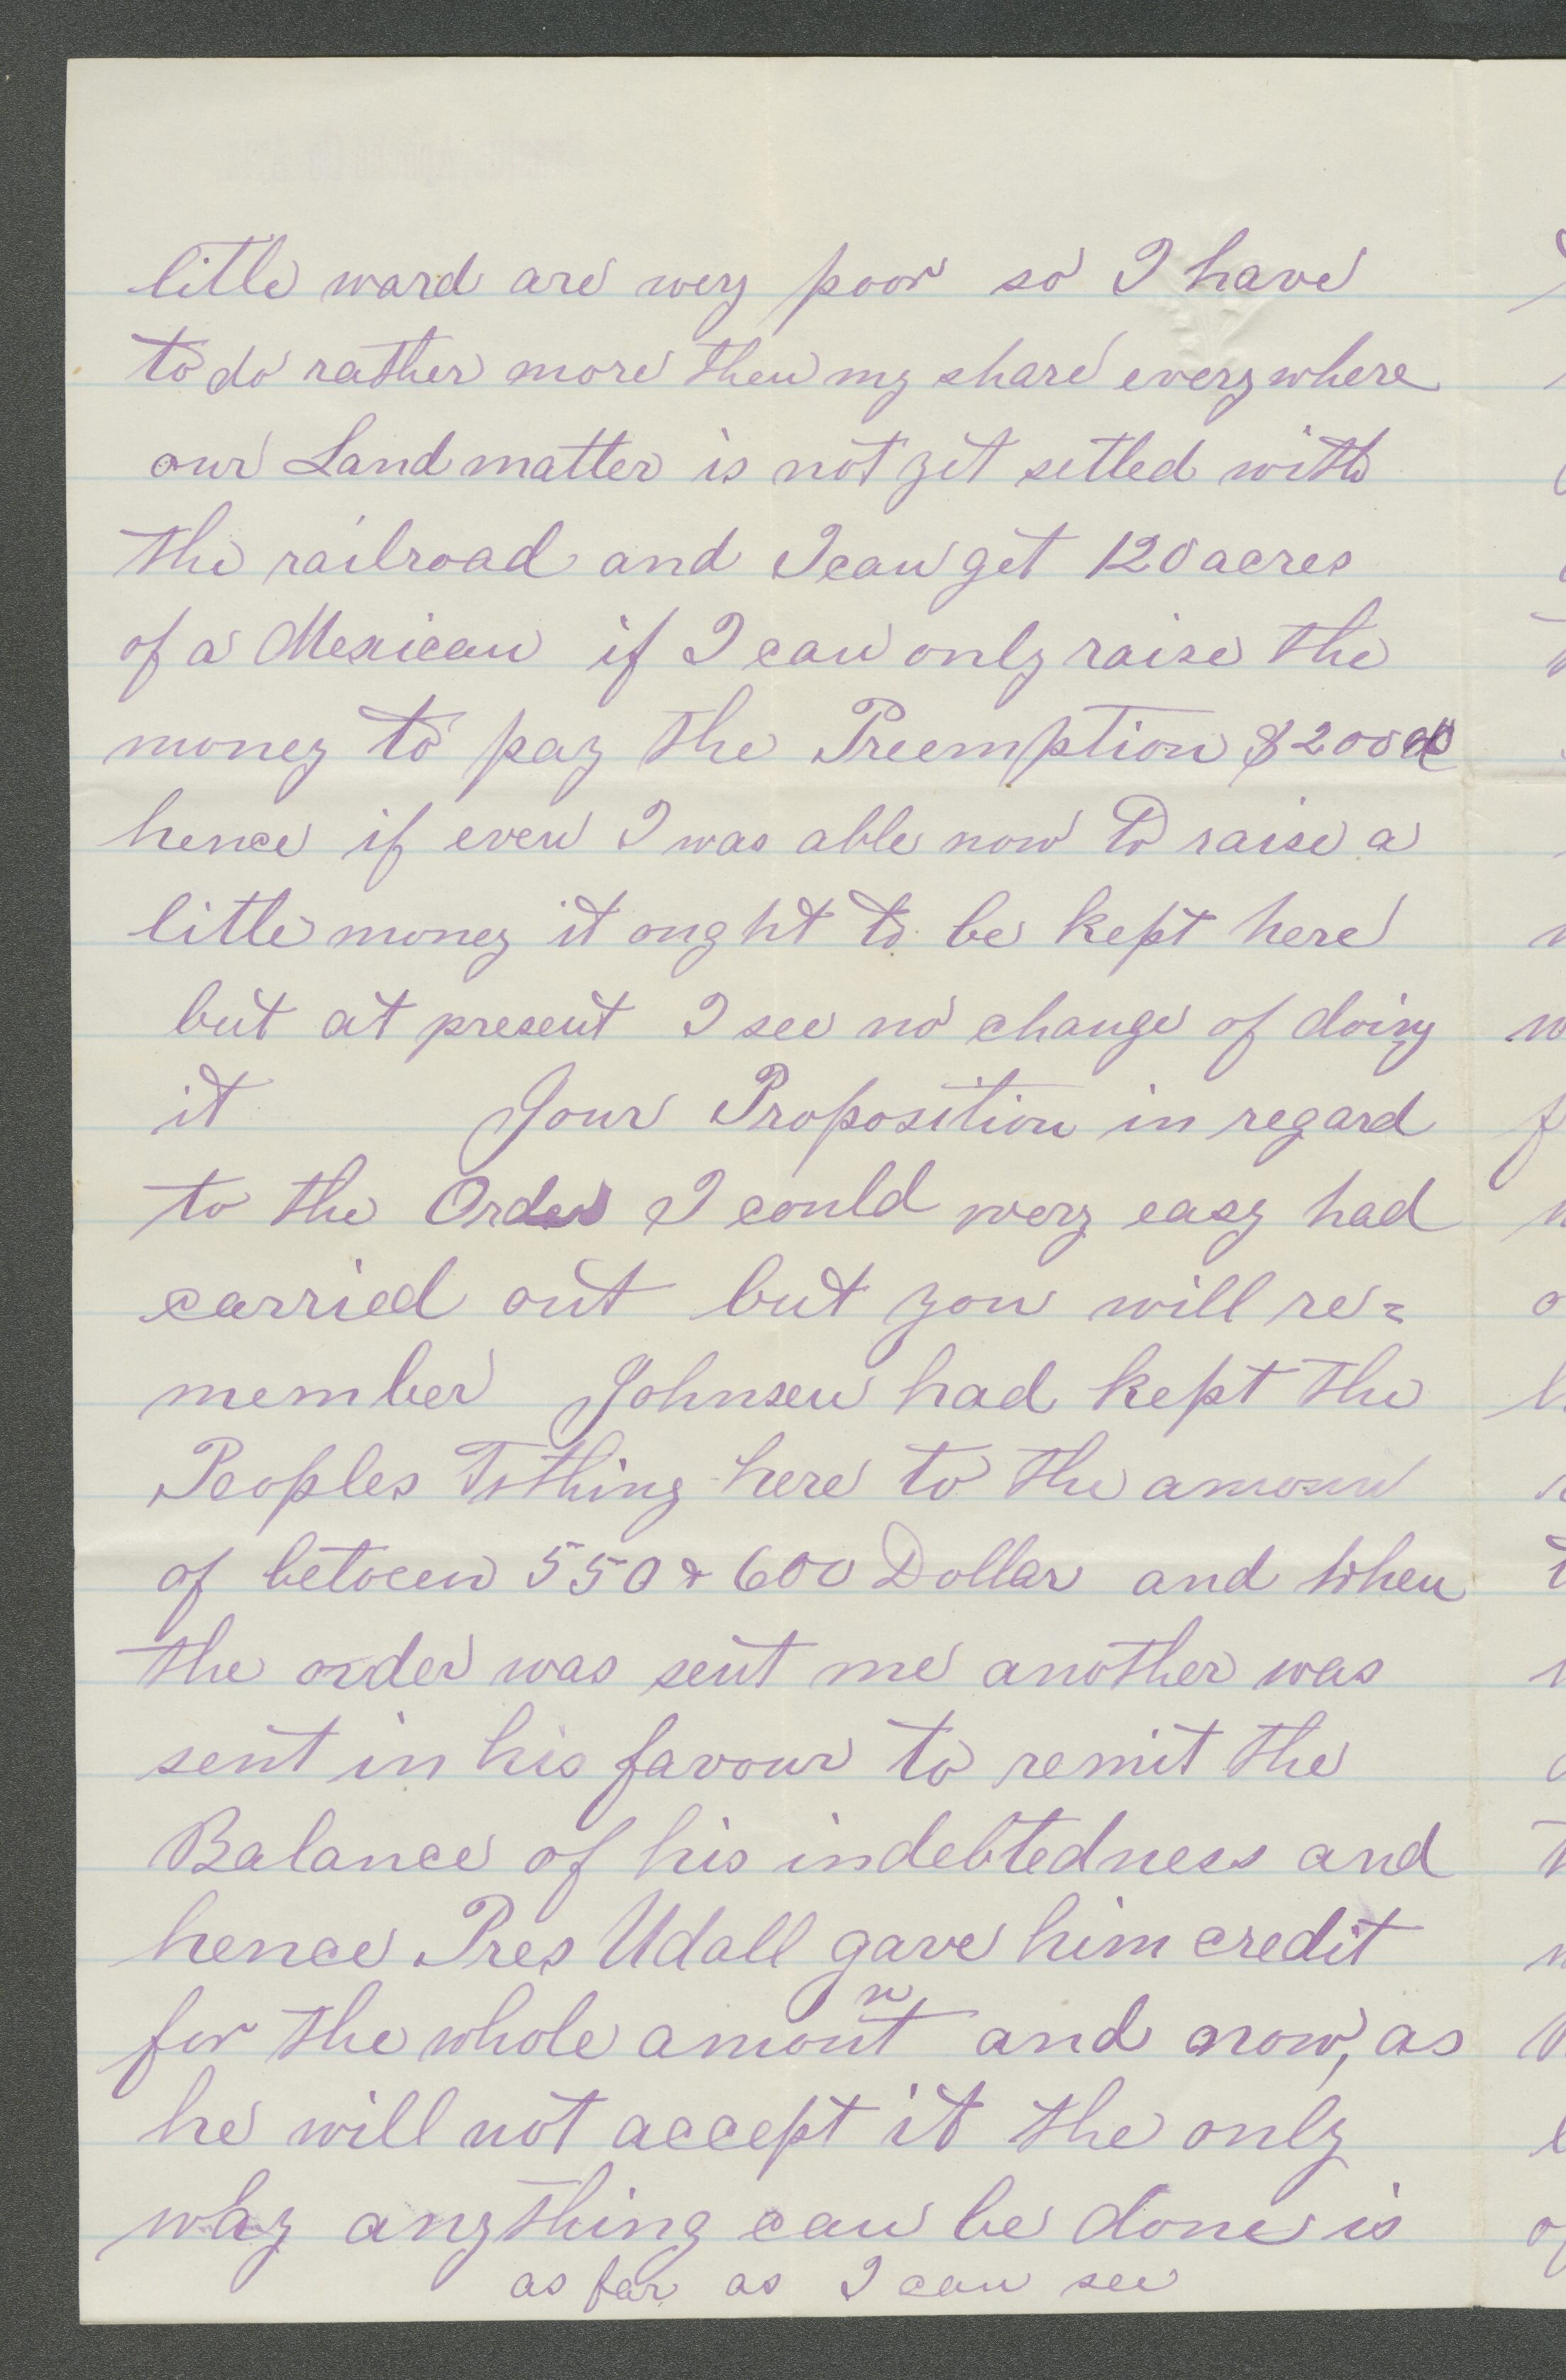 litle ward are wery poor so I have
to do rather more then my share everywhere
our Land matter is not yet setled with
the railroad and I can get 120 acres
of a Mexican if I can only raise the
money to pay the Preemption $200
hence if even I was able now to raise a
little money it ought to be kept here
but at present I see no change of doing
it Your Proposition in regard
to the Order I could wery easy had
carried out but you will re=
member Johnsen had kept the
Peoples Tithing here to the amoun
of between 550 & 600 Dollar and when
the order was sent me another was
sent in his favour to remit the
Balance of his indebtedness and
hence Pres Udall gave him credit
for the whole amount and now, as
he will not accept it the only
way anything can be done is
as far as I can see